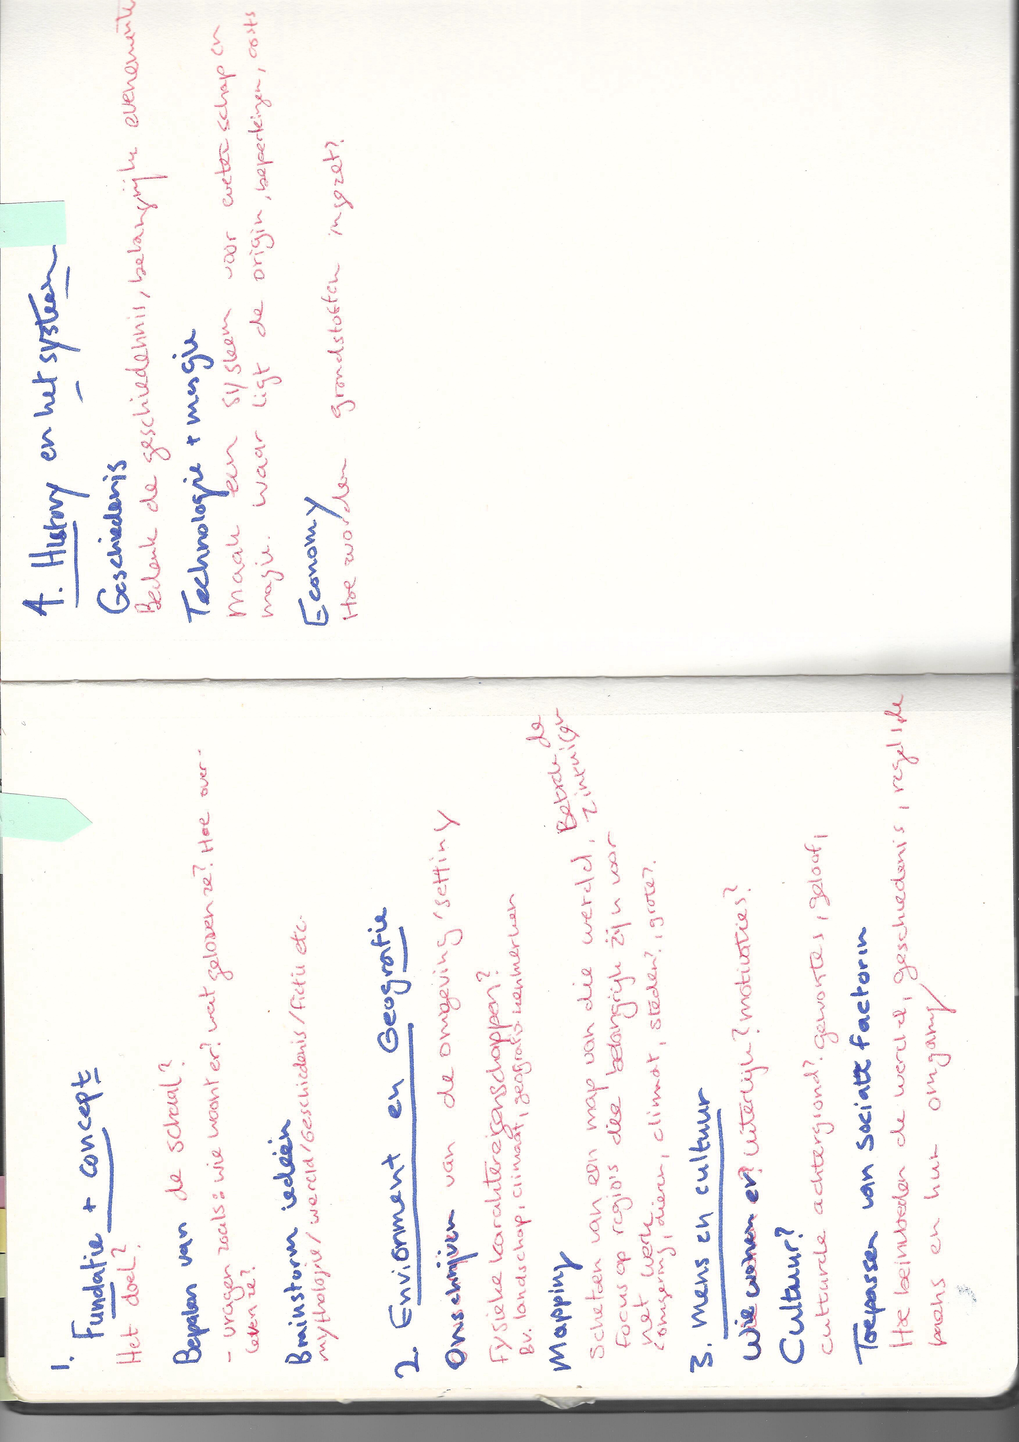 1. Fundatie + concept
Het doel?
Bepalen van de schaal?
- vragen zoals: wie woont er? wat geloven ze? Hoe over-
leven ze?
Brainstorm ideeën
mythologie/wereld/Geschiedenis/fictie etc.
2. Envionment en Geografie
Omschrijven van de omgeving/setting
Fysieke karaktereigenschappen?
Bv. landschap, climaat, geografie kenmerken
Mapping
Schetsen van een map van die wereld,
Focus op regio's die belangrijk zijn voor
het werk
omgeving, dieren, climat, steden?, grote?.
3. Mens en cultuur
Wie wonen er? Uiterlijk? motivaties?
Cultuur?
culturele achtergrond? gewoontes, geloof,
Toepassen van sociale factoren
Hoe beinvloeden de wereld, geschiedenis, regels de
mens en hun omgang
4. History en het systeem
Geschiedenis
Bedenk de geschiedenis, belangrijke evenementen
Technologie + magie
Maak een systeem voor wetenschap en
magie. Waar ligt de origin, beperkingen, costs
Economy
Hoe worden grondstoffen ingezet?